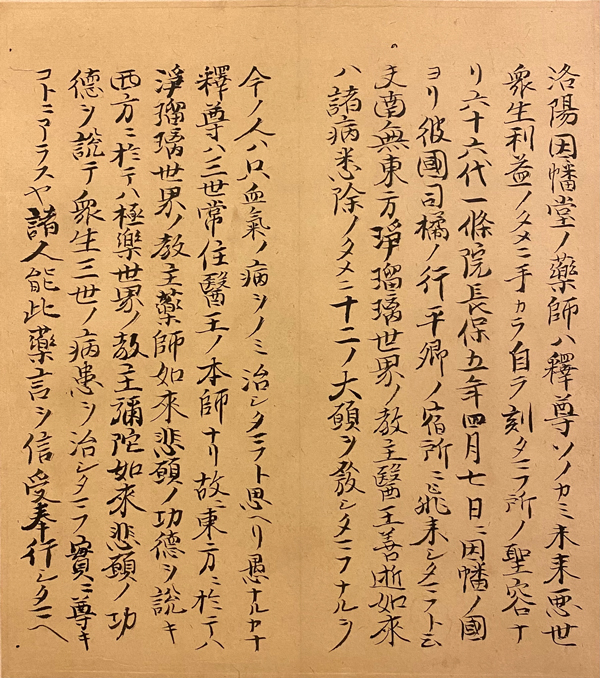 洛陽因幡堂ノ藥師ハ釋尊ソノカミ未来悪世
衆生利益ノタメニ手カラ自ラ刻タマフ所ノ聖容ナ
リ六十六代一條院長保五年四月七日ニ因幡ノ國
ヨリ彼國司橘ノ行平卿ノ宿所ニ飛来シタマフト云
夫南無東方淨瑠璃世界ノ教主醫王善逝如來
ハ諸病悉除ノタメニ十二ノ大願ヲ發シタマフナルヲ
今ノ人ハ只血氣ノ病ヲノミ治シタマフト思ヘリ愚ナルカナ
釋尊ハ三世常住醫王ノ本師ナリ故ニ東方ニ於テハ
淨瑠璃世界ノ教主藥師如來悲願ノ功德ヲ説キ
西方ニ於テハ極樂世界ノ教主彌陀如來悲願ノ功
德ヲ說テ衆生三世ノ病患ヲ治シタマフ實ニ尊キ
コトニマラスヤ諸人能此藥言ヲ信受奉行シタマヘ